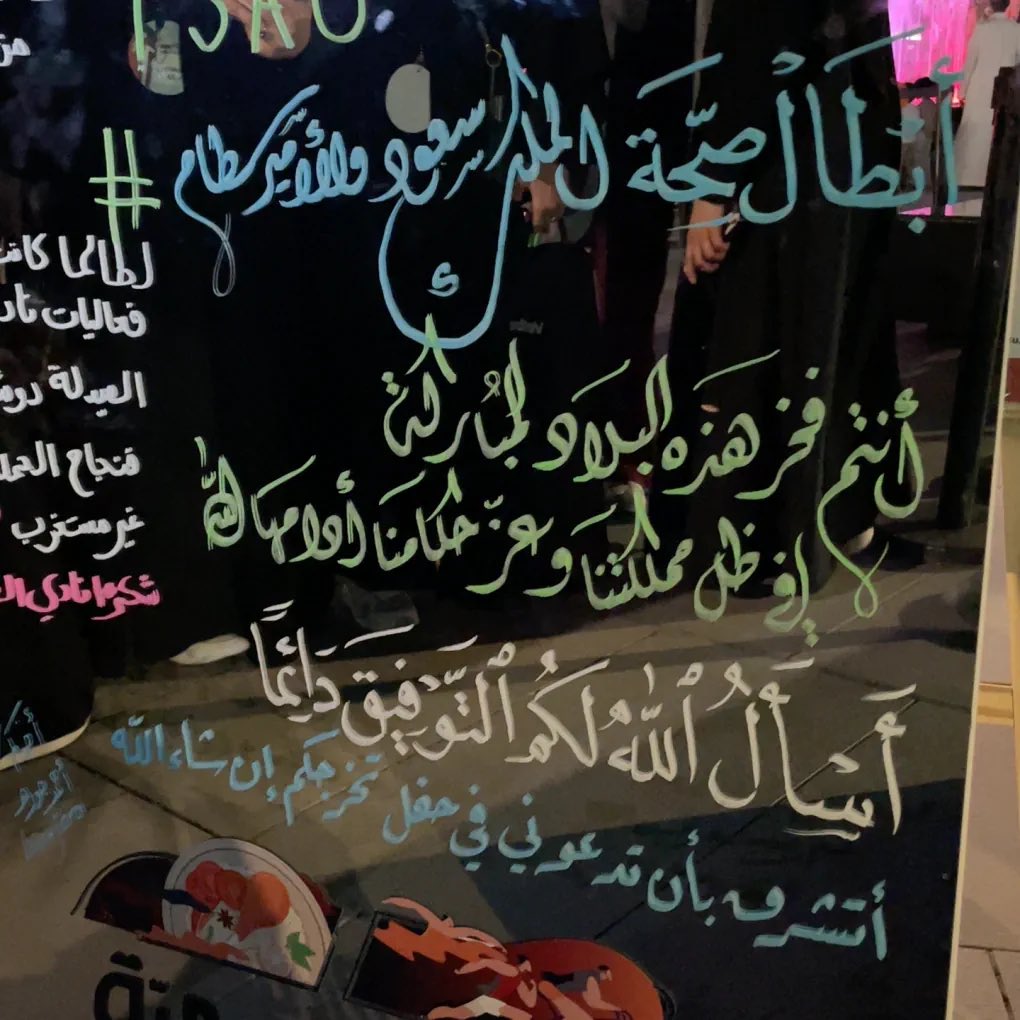 أَبْطَالْ صِحَّة الملك سعود والأمير سطام
أنتم فخر هَذه البلَاد المبُاركة
في ظل مملكتنَا وعزّ حكامنَا أدامها اللَّه
أَسْأَلُ ٱللَّهَ لَكُمُ ٱلْتَّوَفِيقَ دَائِمًا
أتشرف بأن تدعوني في حفل تخرجكم إن شاء اللّه
#
لطالما كانت
فعاليات
الصيدلة
فنجاح الحملة
غير مستغرب
شكرا نادي